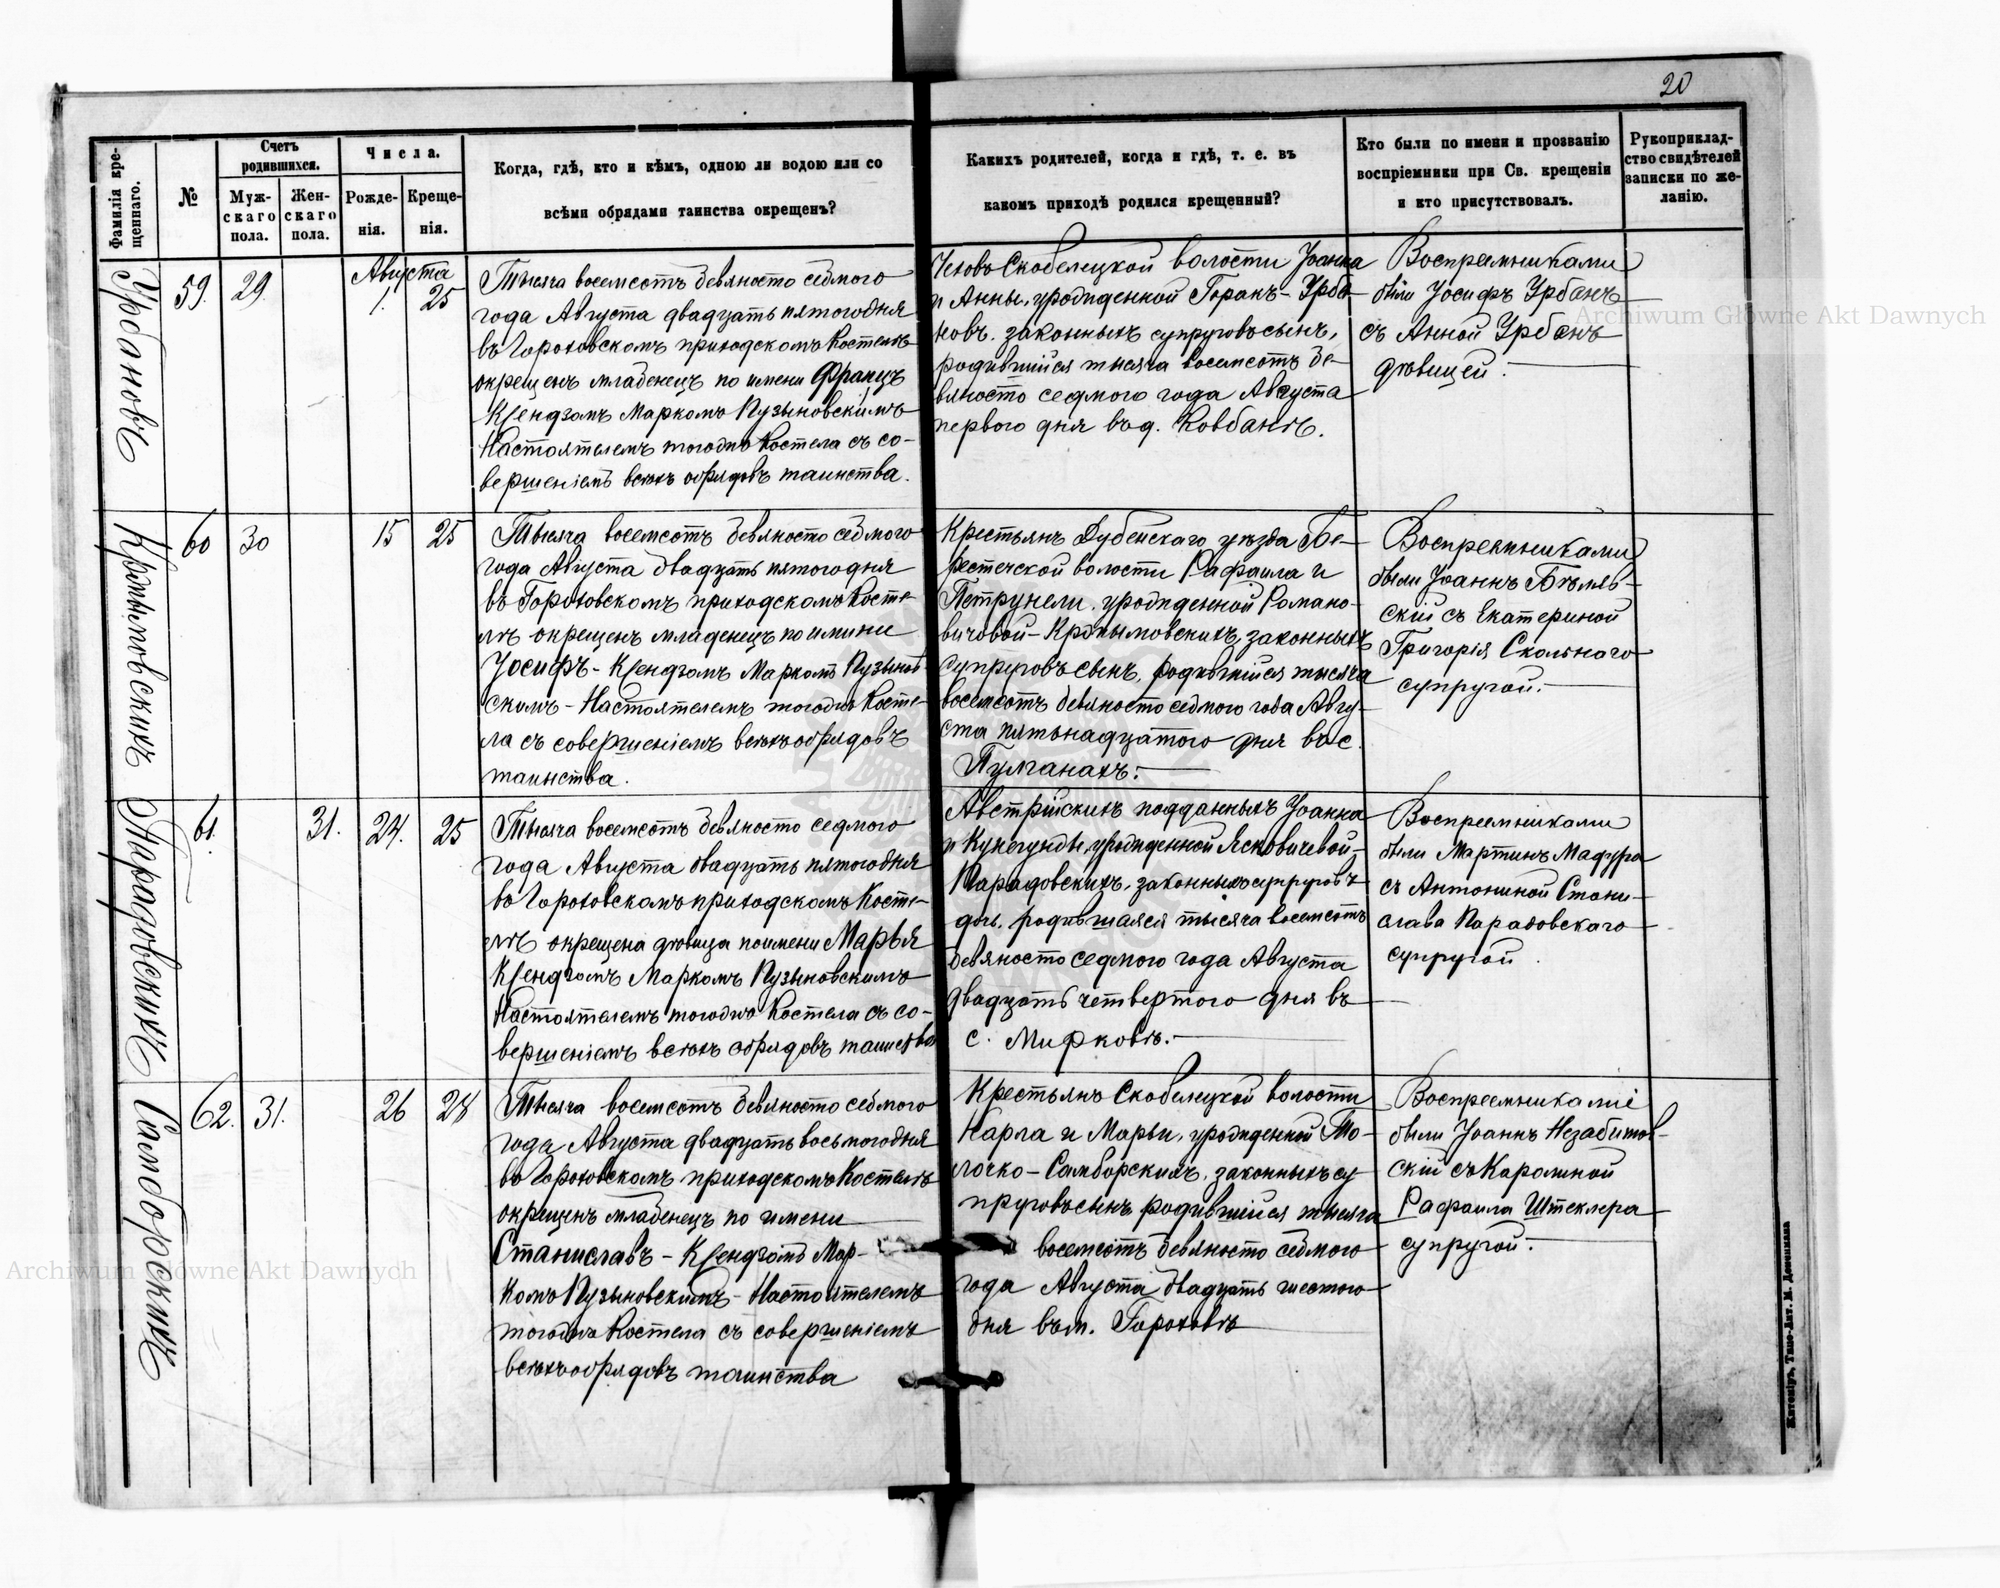 20
Фамилія кре-
щеннаго.
№
Счетъ
родившихся.
Муж-
скаго
пола.
Жен-
скаго
пола.
Числа.
Рожде-
нія.
Креще-
нія.
Когда, гдѣ, кто и кѣмъ, одною ли водою или со
всѣми обрядами таинства окрещенъ?
Какихъ родителей, когда и гдѣ, т. е. въ
какомъ приходѣ родился крещенный?
Кто были по имени и прозванію
воспріемники при Св. крещеніи
и кто присутствовалъ.
Рукоприклад-
ство свидѣтелей
записки по же-
ланію.
Урбановъ
59.
29.
Августа
1.
25
Тысяча восемсотъ девяносто седмого
года Августа двадцать пятого дня
въ Гороховскомъ приходскомъ Костелѣ
окрещенъ младенецъ по имени Францъ
Ксендзомъ Маркомъ Пузыновскимъ
Настоятелемъ тогожъ Костела съ со-
вершеніемъ всѣхъ обрядовъ таинства.
Чеховъ Скобелецкой волости Іоанна
и Анны, урожденной Горакъ - Урба-
новъ. законныхъ супруговъ сынъ,
родившійся тысяча восемсотъ де-
вяносто седмого года Августа
первого дня въ д. Ковбанѣ.
Воспреемниками
были Іосифъ Урбанъ
съ Анной Урбанъ
дѣвицей.
60
30
15
25
Тысяча восемсотъ девяносто седмого
года Августа двадцать пятого дня
въ Гороховскомъ приходскомъ Косте-
лѣ окрещенъ младенецъ по имени
Іосифъ - Ксендзомъ Маркомъ Пузынов-
скимъ - Настоятелемъ тогожъ Косте-
ла съ совершеніемъ всѣхъ обрядовъ
таинства.
Крестьянъ Дубенскаго уѣзда Бе-
рестечской волости Рафаила и
Петрунели, урожденной Романо-
вичовой - законныхъ
супруговъ сынъ, родившійся тысяча
восемсотъ девяносто седмого года Авгу-
ста пятьнадцатого дня въ с.
Пулганахъ.
Воспреемниками
были Іоаннъ Бѣляв-
скій съ Екатериной
Григорія Скольного
супругой.
Парадовскихъ
61.
31.
24.
25
Тысяча восемсотъ девяносто седмого
года Августа двадцать пятого дня
въ Гороховскомъ приходскомъ Косте-
лѣ окрещена дѣвица по имени Марья
Ксендзомъ Маркомъ Пузыновскимъ
Настоятелемъ тогожъ Костела съ со-
вершеніемъ всѣхъ обрядовъ таинства
Австрійскихъ подданныхъ Іоанна
и Кунегунды, урожденной Ясковичевой -
Парадовскихъ, законныхъ супруговъ
дочь, родившаяся тысяча восемсотъ
девяносто седмого года Августа
двадцать четвертого дня въ
с. Мирковѣ.
Воспреемниками
были Мартинъ Мадура
съ Антониной Стани-
слава Парадовскаго
супругой.
Самборскихъ
62.
31.
26
28
Тысяча восемсотъ девяносто седмого
года Августа двадцать восьмого дня
въ Гороховскомъ приходскомъ Костелѣ
окрещенъ младенецъ по имени
Станиславъ - Ксендзомъ Мар-
комъ Пузыновскимъ - Настоятелемъ
тогожъ Костела съ совершеніемъ
всѣхъ обрядовъ таинства
Крестьянъ Скобелецкой волости
Карла и Марьи, урожденной То-
лочко - Самборскихъ, законныхъ су
пруговъ сынъ родившійся тысяча
восемсотъ девяносто седмого
года Августа двадцать шестого
дня въ м. Гороховѣ
Воспреемниками
были Іоаннъ Незабитов-
скій съ Каролиной
Рафаила Штеклера
супругой.
Житоміръ, Типо-Лит. М. Дененмана
Archiwum Główne Akt Dawnych
Archiwum Główne Akt Dawnych